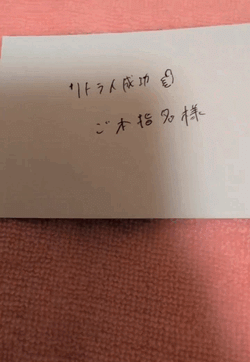 リトライ成功
ご本指名様